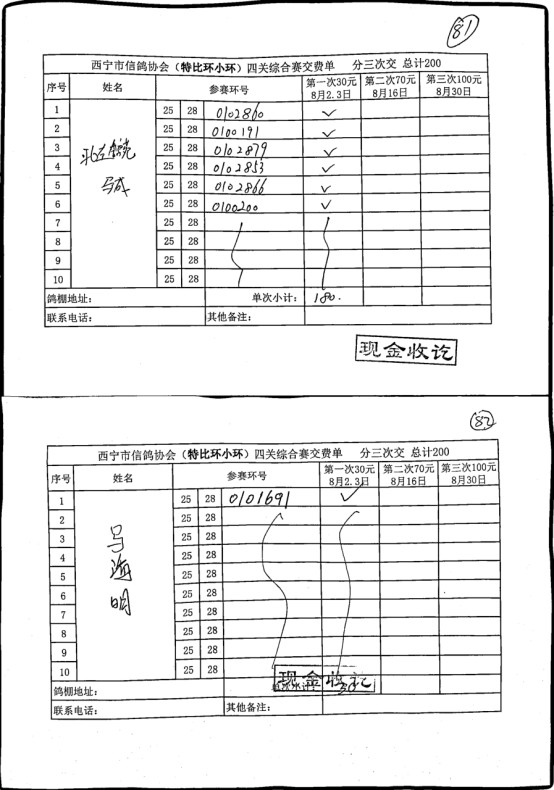 81
西宁市信鸽协会（特比环小环）四关综合赛交费单 分三次交 总计200
序号 姓名 参赛环号 第一次30元 8月2.3日 第二次70元 8月16日 第三次100元 8月30日
1 25 28 0102860 ✓
2 25 28 0100191 ✓
3 25 28 0102879 ✓
4 25 28 0102853 ✓
5 25 28 0102866 ✓
6 25 28 0100200 ✓
7 25 28
8 25 28
9 25 28
10 25 28
鸽棚地址： 单次小计： 180.
联系电话： 其他备注：
现金收讫
82
西宁市信鸽协会（特比环小环）四关综合赛交费单 分三次交 总计200
序号 姓名 参赛环号 第一次30元 8月2.3日 第二次70元 8月16日 第三次100元 8月30日
1 25 28 0101691 ✓
2 25 28
3 25 28
4 25 28
5 25 28
6 25 28
7 25 28
8 25 28
9 25 28
10 25 28
马海明
鸽棚地址：
现金收讫
联系电话： 其他备注：